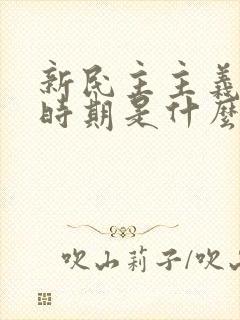 新民主主義
時期是什麼
吹山莉子/吹山